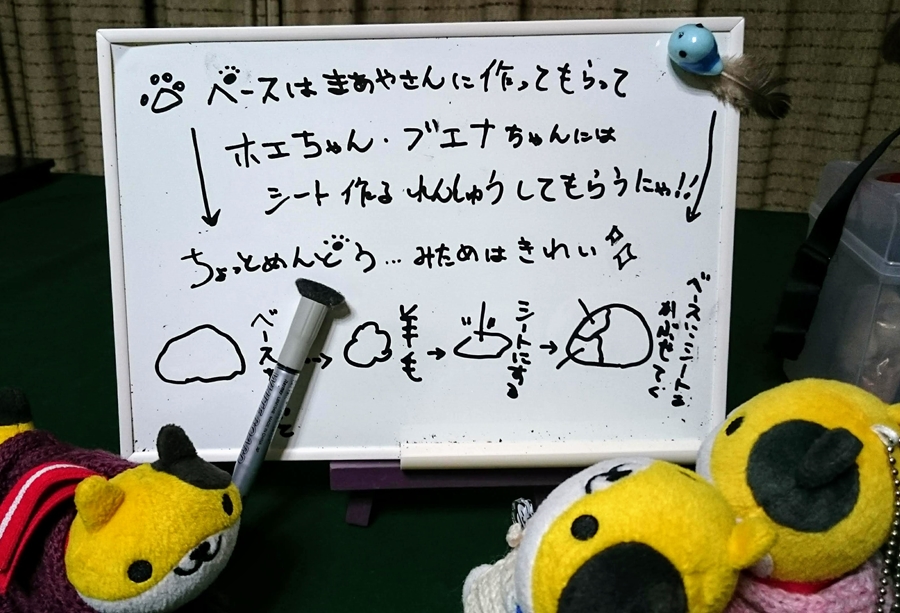 ベースはまあやさんに作ってもらって
ホエちゃん・ブエナちゃんには
シート作るれんしゅうしてもらうにゃ!!
ちょっとめんどう…みためはきれい
ベース
羊毛
シートにする
ベースにシートを
かぶせてく